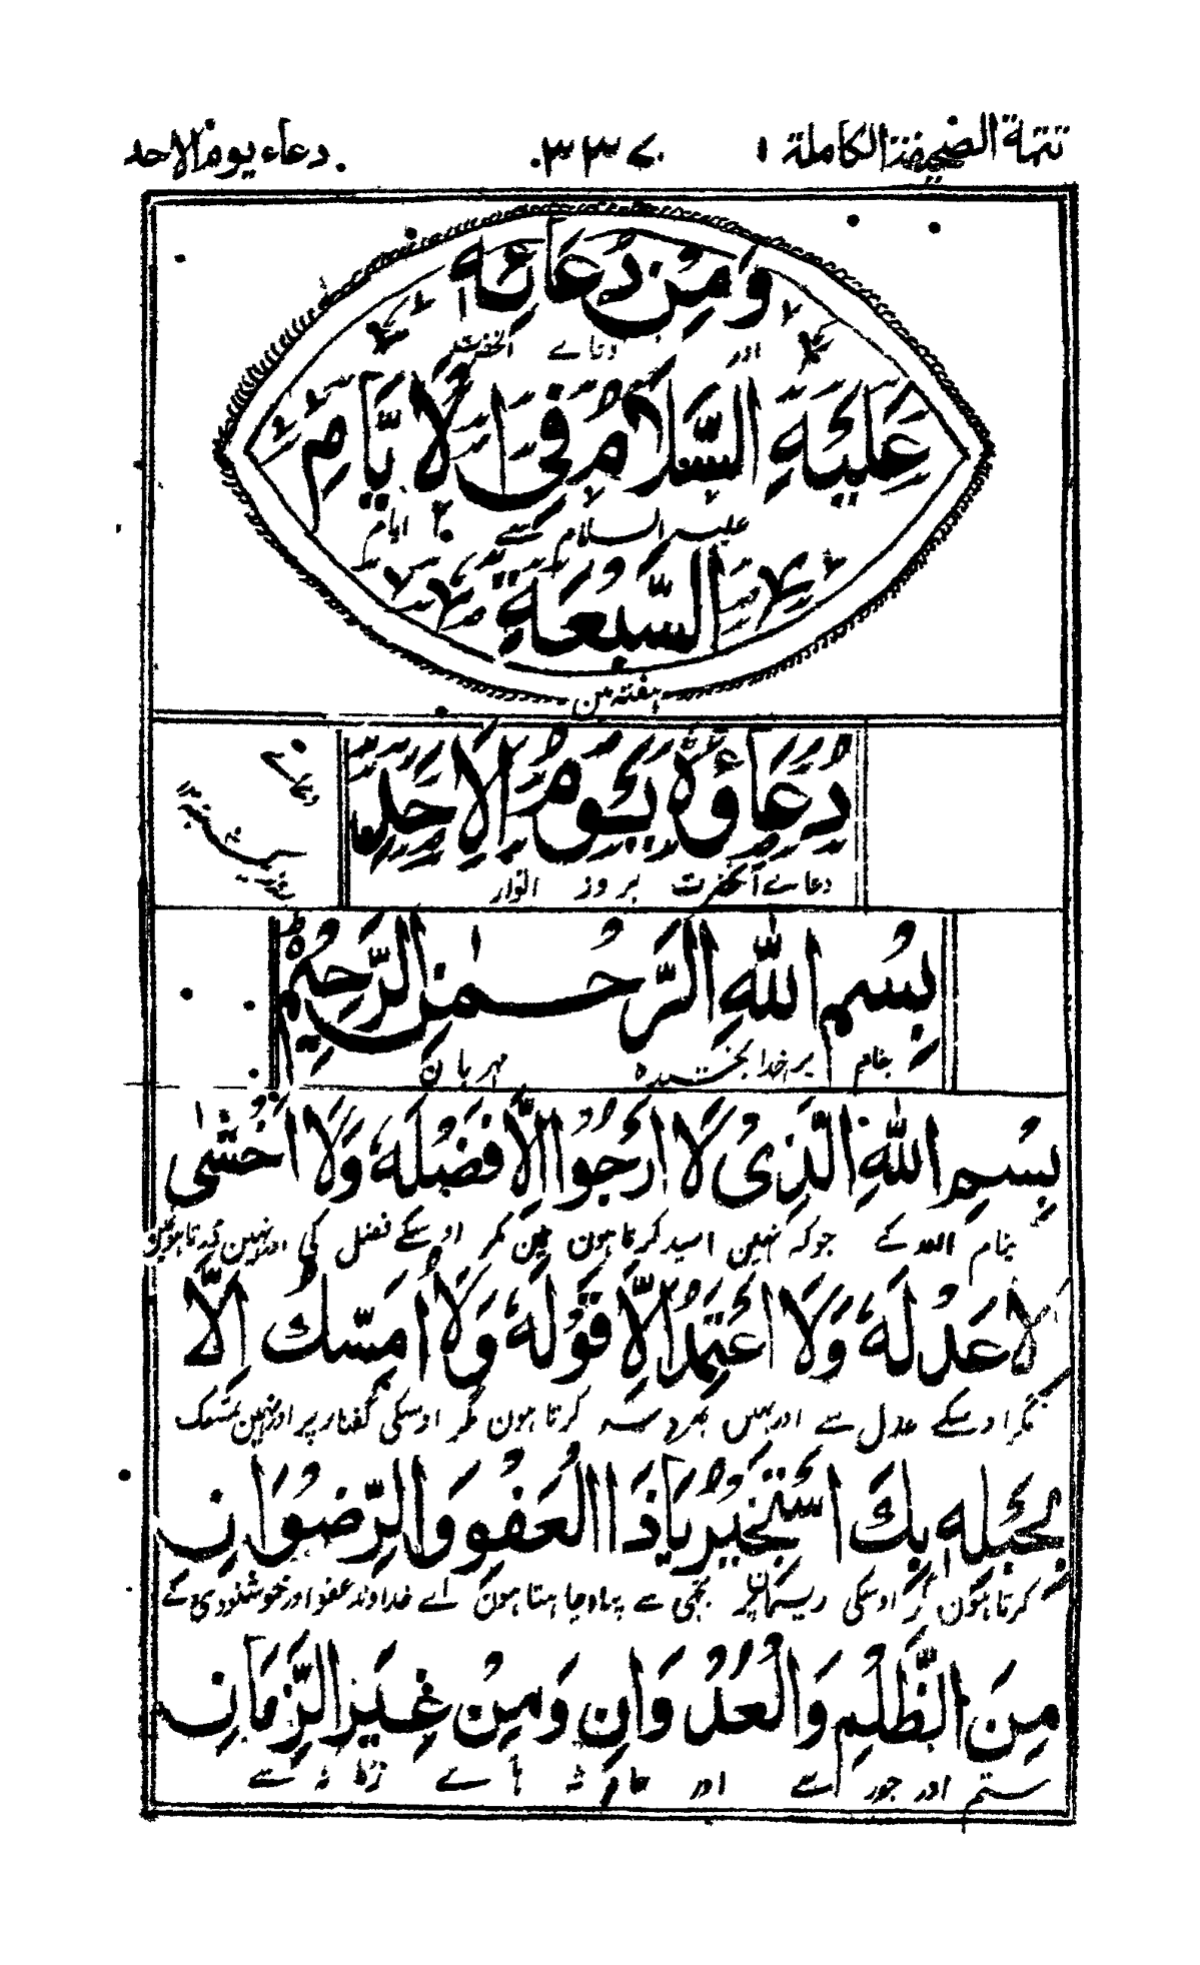 تتمة الصحيفة الكاملة ٣٣٧ دعاء يوم الاحد
وَمِنْ دُعَائِهٖ
اور دعاے آنحضرت
عَلَيْهِ السَّلَامُ فِى الْاَيَّامِ
علیہ السلام سے ایام
السَّبْعَةِ
ہفتہ مین
دُعَاؤُهٗ يَوْمَ الْاَحَدِ
دعاے آنحضرت بروز اتوار
بِسْمِ اللّٰهِ الرَّحْمٰنِ الرَّحِيْمِ
بنام خدا بخشندہ مہربان
بِسْمِ اللّٰهِ الَّذِىْ لَا اَرْجُوْا اِلَّا فَضْلَهٗ وَلَا اَخْشٰى
بنام اللہ کے جوکہ نہین امید کرتا ہون مین مگر اوسکے فضل کی اور نہین ڈرتا ہون مین
اِلَّا عَدْلَهٗ وَلَا اَعْتَمِدُ اِلَّا قَوْلَهٗ وَلَا اُمَسِّكُ اِلَّا
مگر اوسکے عدل سے اور نہین بھروسہ کرتا ہون مگر اوسکی گفتار پر اور نہین تمسک
بِحَبْلِهٖ بِكَ اَسْتَجِيْرُ يَا ذَا الْعَفْوِ وَالرِّضْوَانِ
کرتا ہون مگر اوسکی ریسمان پر تجھی سے پناہ چاہتا ہون اے خداوند عفو اور خوشنودی کے
مِنَ الظُّلْمِ وَالْعُدْوَانِ وَمِنْ غِيَرِ الزَّمَانِ
ستم اور جور سے اور حادثہ ہاے زمانہ سے